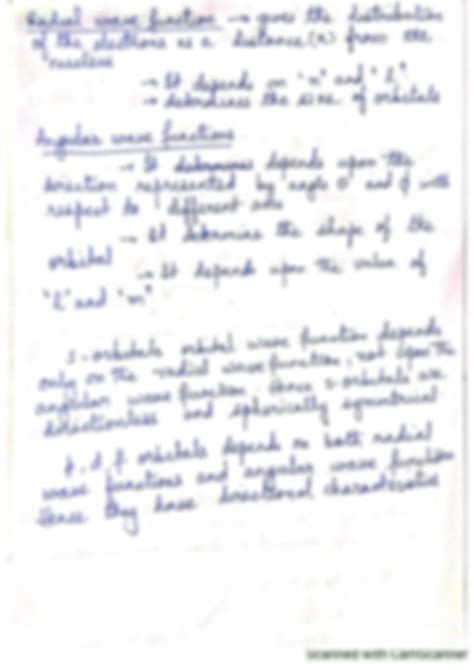 Radial wave function → gives the distribution
of the electrons as a distance (r) from the
nucleus
→ It depends on "n" and "l"
→ determines the size of orbitals
Angular wave functions
→ It determines depends upon the
direction represented by angle θ and ϕ with
respect to different axis
→ It determine the shape of the
orbital
→ It depends upon the value of
"l" and "m"
s-orbitals orbital wave function depends
only on the radial wave function, not upon the
angular wave function. Hence s-orbitals are
directionless and spherically symmetrical
p, d, f orbitals depends on both radial
wave functions and angular wave function
Hence they have directional characteristic
Scanned with CamScanner